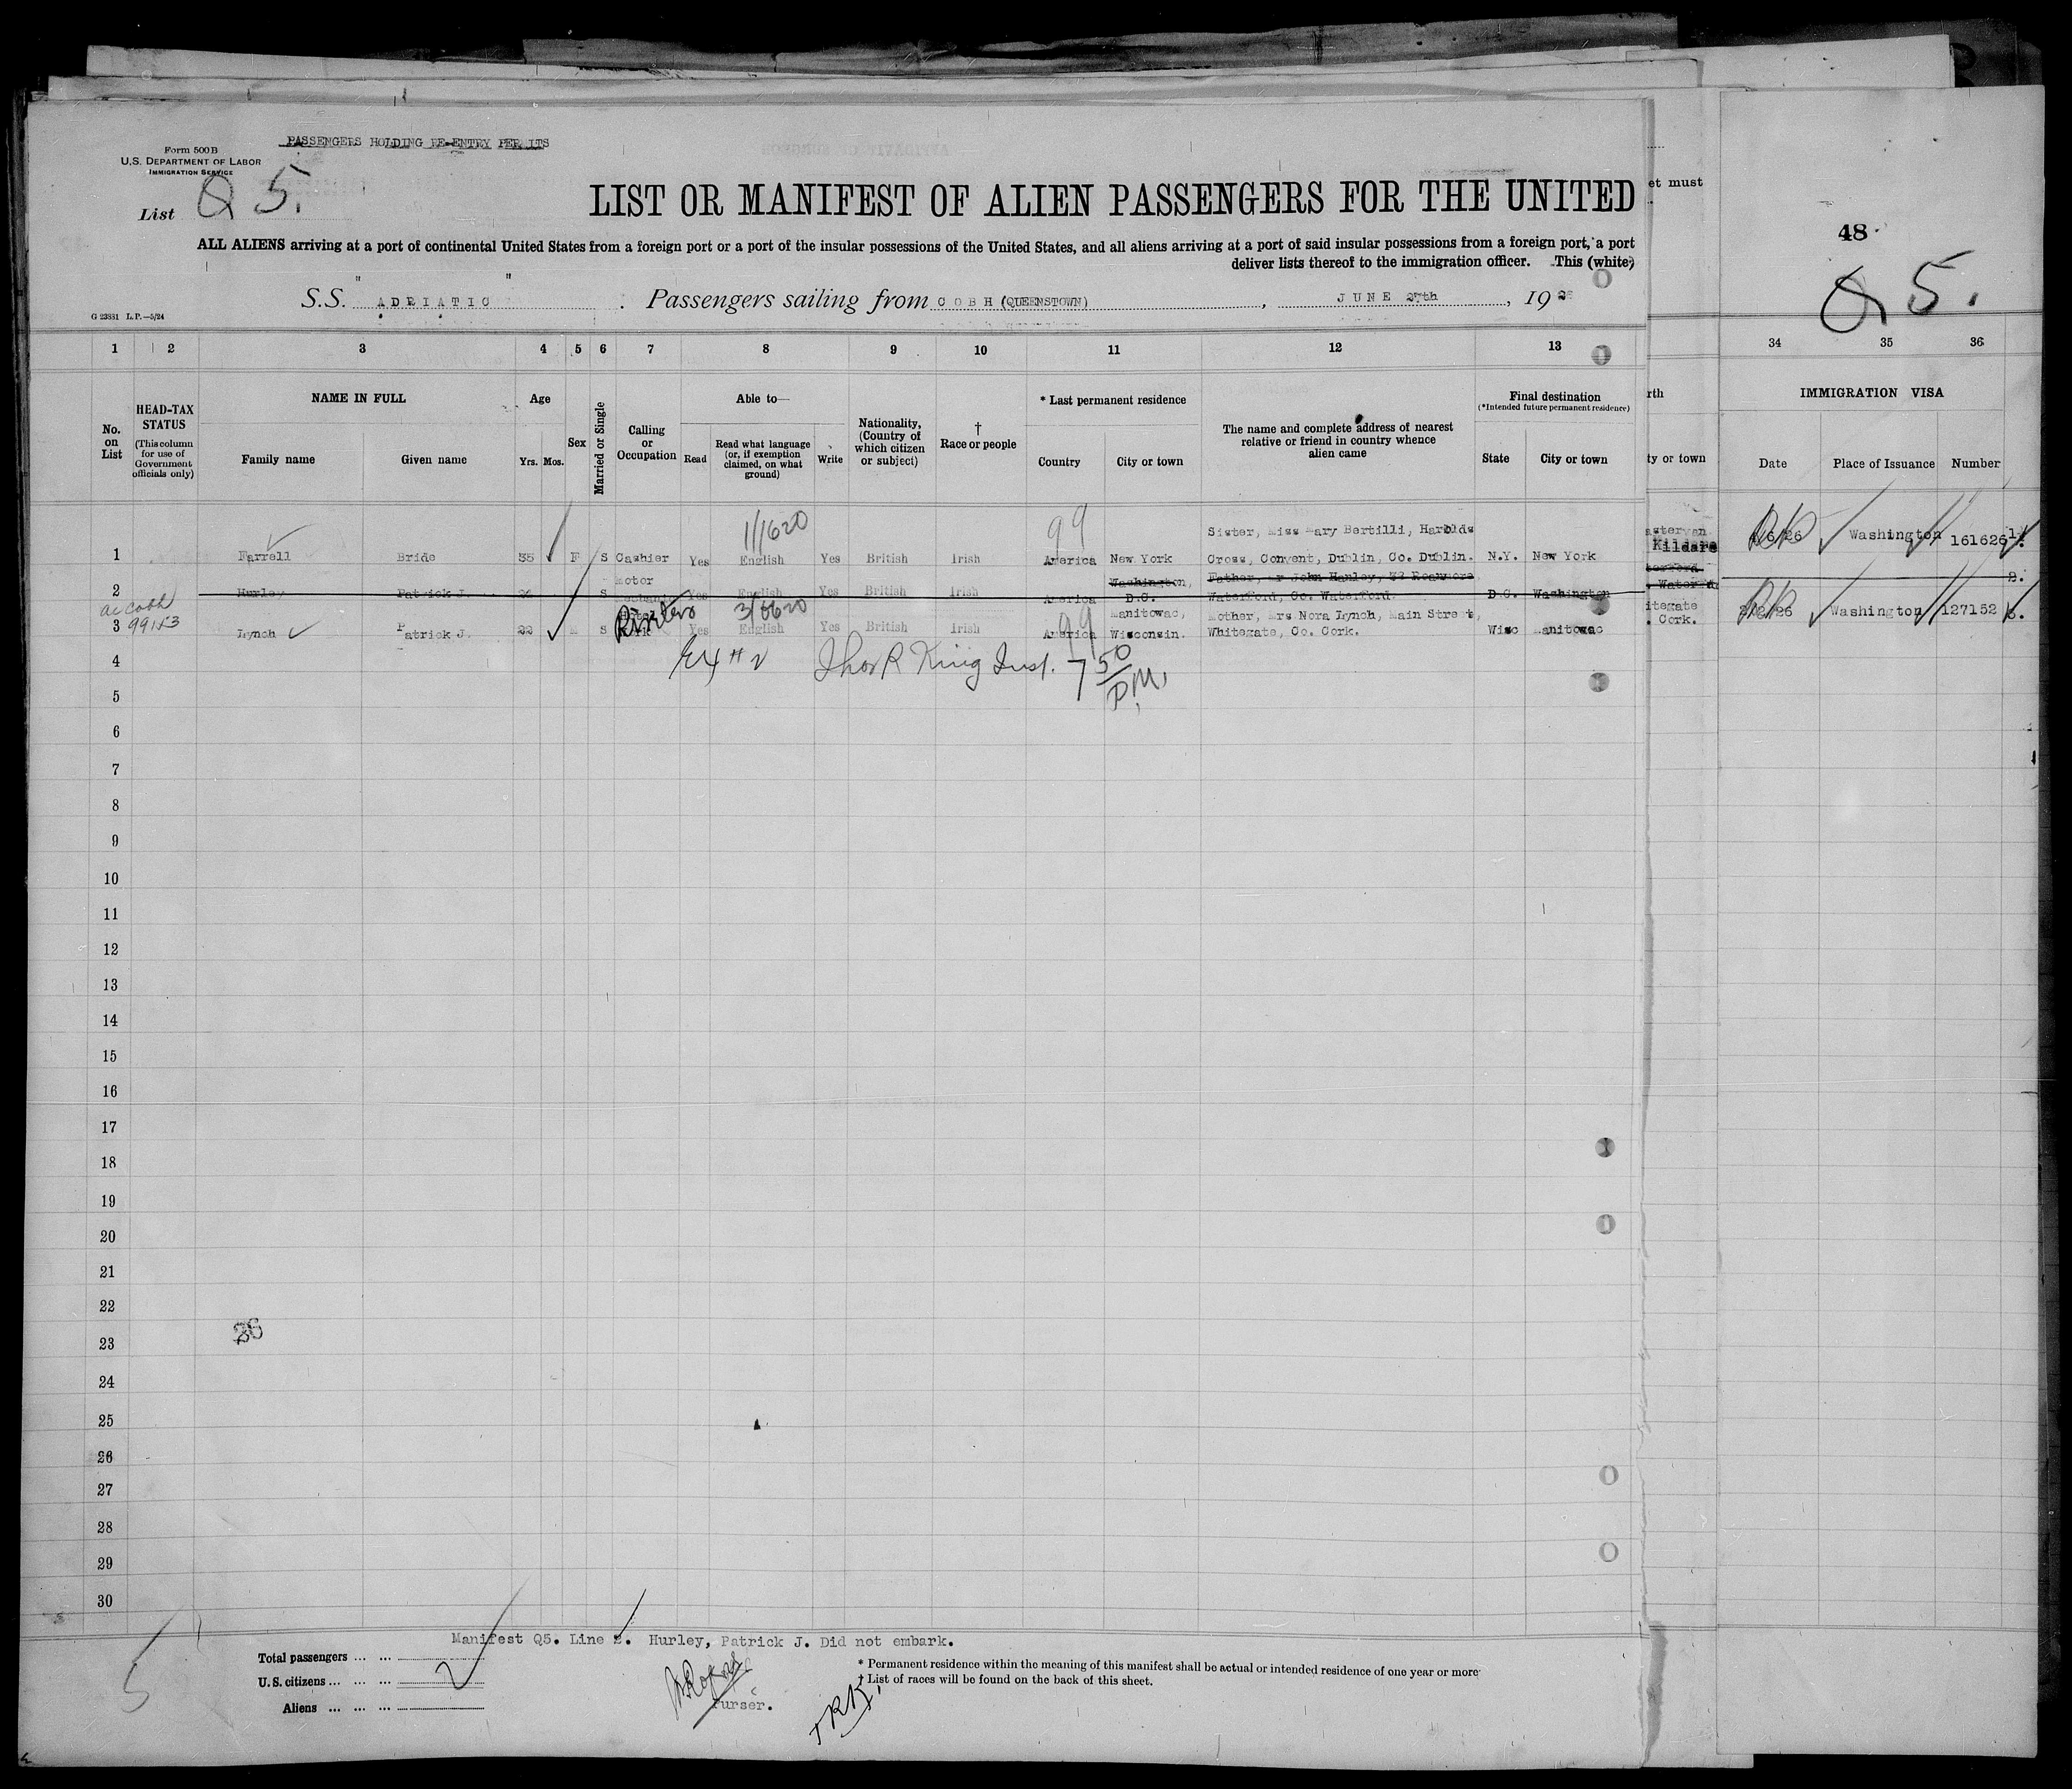 PASSENGERS HOLDING RE-ENTRY PERMITS
Form 500 B
U.S. DEPARTMENT OF LABOR
IMMIGRATION SERVICE
List Q 5.
LIST OR MANIFEST OF ALIEN PASSENGERS FOR THE UNITED
et must
48
Q 5.
ALL ALIENS arriving at a port of continental United States from a foreign port or a port of the insular possessions of the United States, and all aliens arriving at a port of said insular possessions from a foreign port, a port
deliver lists thereof to the immigration officer. This (white)
S.S. " ADRIATIC " . Passengers sailing from COBH (QUEENSTOWN) , JUNE 27th , 19
G 23831 L.P.—5/24
1 2 3 4 5 6 7 8 9 10 11 12 13 34 35 36
No. on List
HEAD-TAX STATUS
(This column for use of Government officials only)
NAME IN FULL
Family name Given name
Age
Yrs. Mos.
Sex
Married or Single
Calling or Occupation
Able to—
Read
Read what language (or, if exemption claimed, on what ground)
Write
Nationality, (Country of which citizen or subject)
† Race or people
* Last permanent residence
Country City or town
The name and complete address of nearest relative or friend in country whence alien came
Final destination
(*Intended future permanent residence)
State City or town
rth
ty or town
IMMIGRATION VISA
Date Place of Issuance Number
11/1620 99 Sister, Miss Mary Bertilli, Harolds
1 Farrell Bride 35 F S Cashier Yes English Yes British Irish America New York Cross, Convent, Dublin, Co. Dublin. N.Y. New York Kildare /6/26 Washington 161626 1.
Motor Washington, Father, Mr John Hanley, 33 Roanmore
2 Hurley Patrick J. S Mechanic Yes English Yes British Irish America D.C. Waterford, Co. Waterford. D.C. Washington 2.
99143 3/6620 99 Manitowac, Mother, Mrs Nora Lynch, Main Street, itegate
3 Lynch Patrick J. 22 M S Yes English Yes British Irish America Wisconsin. Whitegate, Co. Cork. Wisc Manitowac . Cork. /2/26 Washington 127152 3.
4 Thos R King Insp. 7 50 P.M.
5
6
7
8
9
10
11
12
13
14
15
16
17
18
19
20
21
22
23
24
25
26
27
28
29
30
Manifest Q5. Line 2. Hurley, Patrick J. Did not embark.
Total passengers ... ...
U.S. citizens ... ... ... 2
Aliens ... ... ...
5
Purser.
TRK.
* Permanent residence within the meaning of this manifest shall be actual or intended residence of one year or more
† List of races will be found on the back of this sheet.